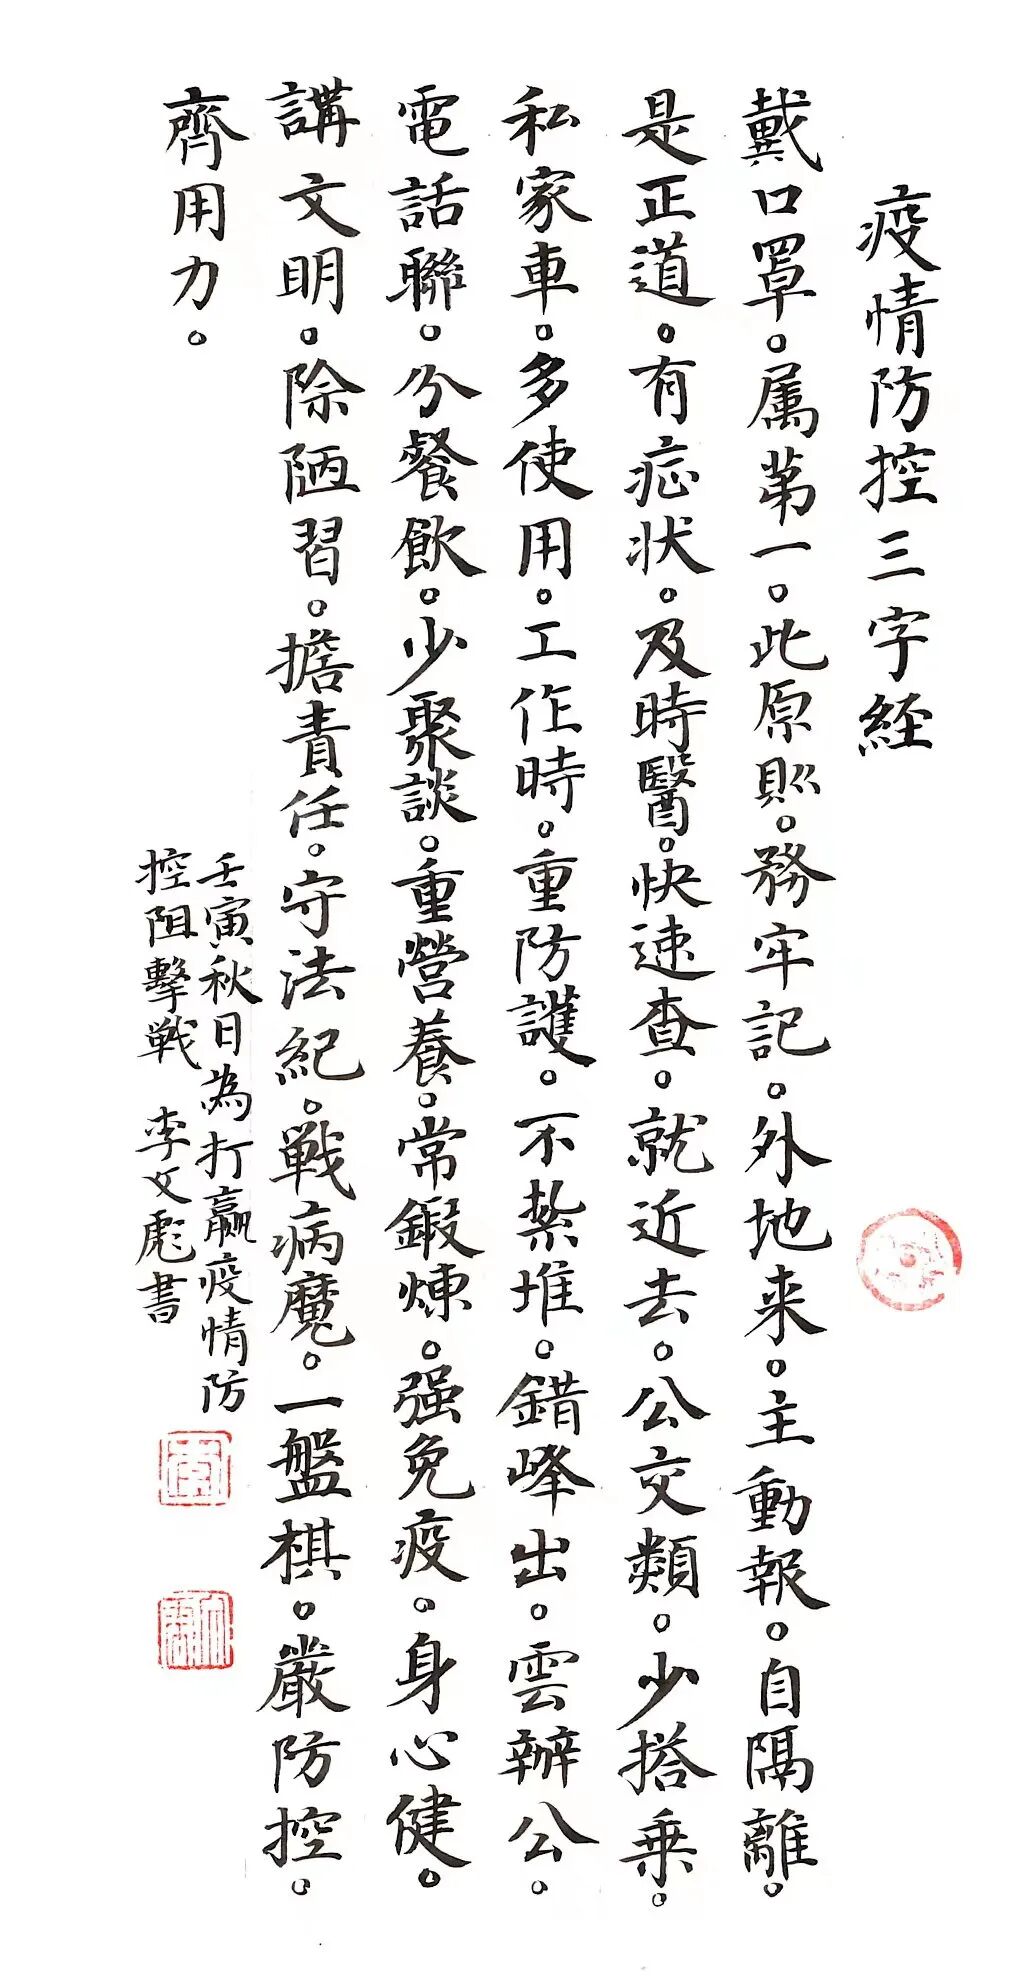 疫情防控三字経
戴口罩。属苐一。此原則。務牢記。外地来。主動報。自隔離。
是正道。有症状。及時醫。快速查。就近去。公交類。少搭乗。
私家車。多使用。工作時。重防護。不紮堆。錯峰出。雲辦公。
電話聯。分餐飲。少聚談。重營養。常鍛煉。强免疫。身心健。
講文明。除陋習。擔責任。守法紀。戦病魔。一盤棋。嚴防控。
齊用力。
壬寅秋日為打贏疫情防
控阻擊戦 李文彪書